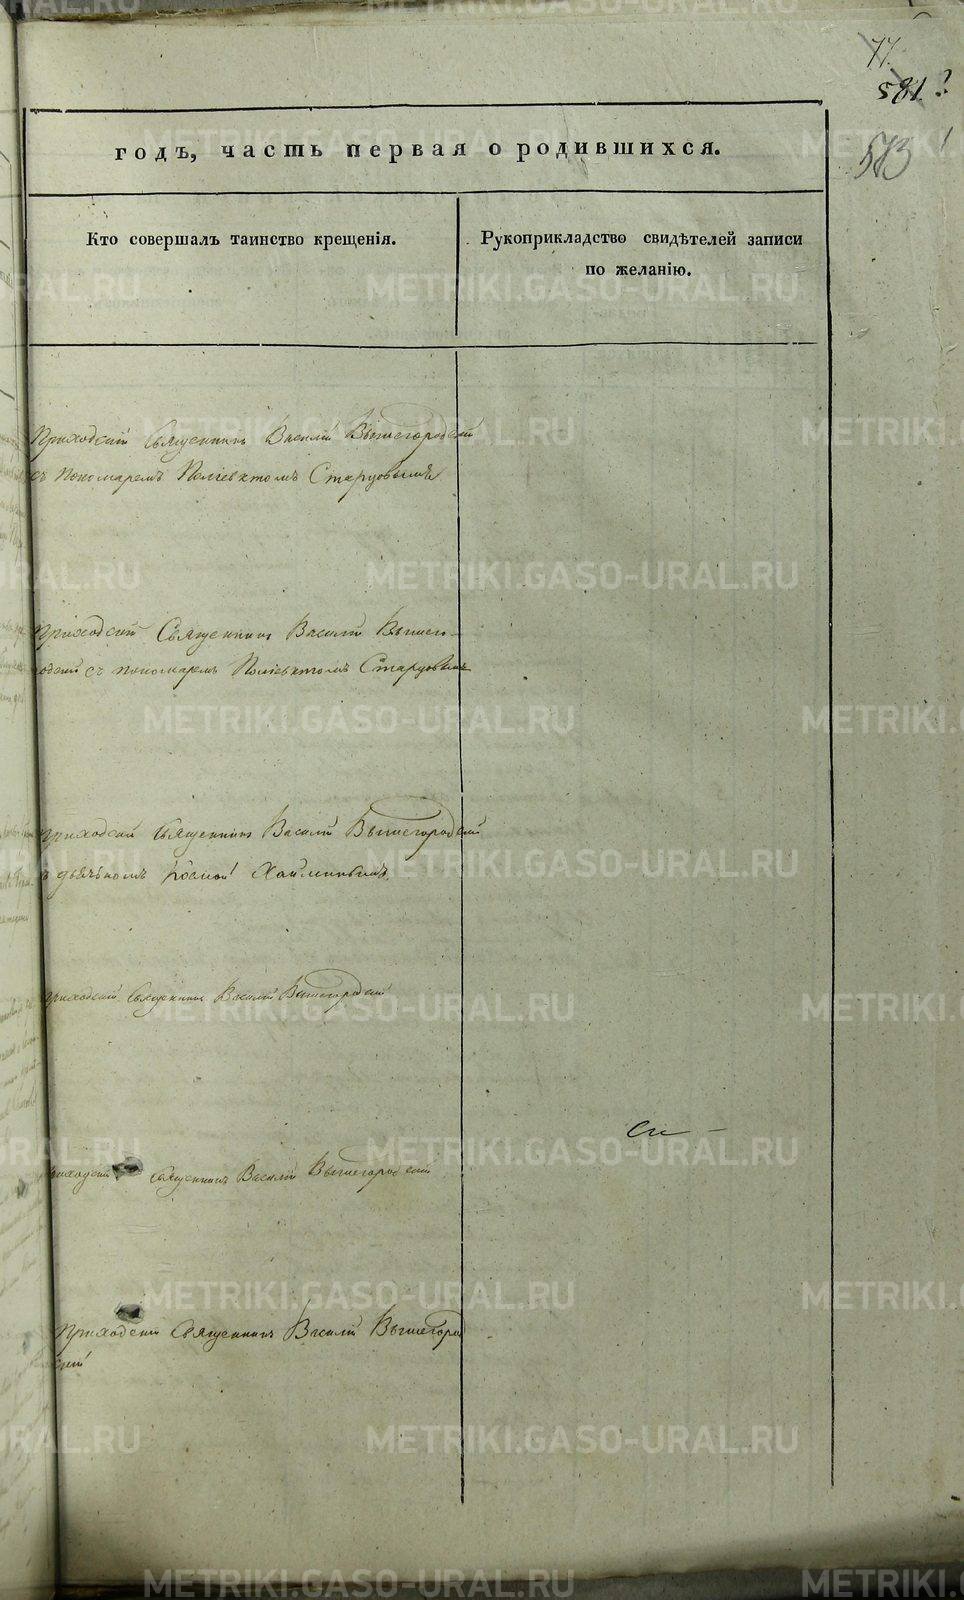 77.
581?
573
годъ, часть первая о родившихся.
Кто совершалъ таинство крещенія.
Рукоприкладство свидѣтелей записи
по желанію.
Приходскій Священникъ Василій Вышегородскій
съ пономаремъ Поліевктомъ Старцовымъ
Приходскій Священникъ Василій Вышего-
родскій съ пономаремъ Поліевктомъ Старцовымъ
Приходскій Священникъ Василій Вышегородскій
съ дьячкомъ Космой
Приходскій Священникъ Василій Вышегородскій
Приходскій Священникъ Василій Вышегородскій
Приходскій Священникъ Василій Вышегород
скій
METRIKI.GASO-URAL.RU